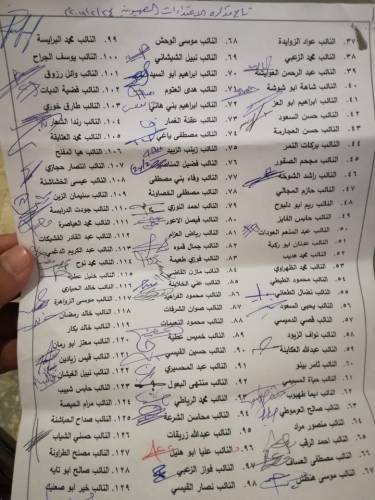 ٣٧. النائب عواد الزوايدة
٣٨. النائب محمد الزعبي
٣٩. النائب عبد الرحمن العوايشة
٤٠. النائب شاهة ابو شوشة
٤١. النائب ابراهيم ابو العز
٤٢. النائب حسن السعود
٤٣. النائب حسن العجارمة
٤٤. النائب بركات النمر
٤٥. النائب مجحم الصقور
٤٦. النائب راشد الشوحة
٤٧. النائب حازم المجالي
٤٨. النائب ريم ابو دلبوح
٤٩. النائب حابس الفايز
٥٠. النائب عبد المنعم العودات
٥١. النائب عدنان ابو ركبة
٥٢. النائب محمد هديب
٥٣. النائب محمد الظهراوي
٥٤. النائب محمود الطيطي
٥٥. النائب نضال الطعاني
٥٦. النائب يحيى السعود
٥٧. النائب قصي الدميسي
٥٨. النائب نواف الزيود
٥٩. النائب عبدالله العكايلة
٦٠. النائب تامر بينو
٦١. النائب حياة المسيمي
٦٢. النائب ديما طهبوب
٦٣. النائب صالح العرموطي
٦٤. النائب منصور مراد
٦٥. النائب احمد الرقب
٦٦. النائب مصطفى العساف
٦٧. النائب موسى هنطش
٦٨. النائب موسى الوحش
٦٩. النائب نبيل الشيشاني
٧٠. النائب ابراهيم ابو السيد
٧١. النائب هدى العتوم
٧٢. النائب ابراهيم بني هاني
٧٣. النائب علقة الغمار
٧٤. النائب مصطفى ياغي
٧٥. النائب زينب الزبيد
٧٦. النائب فضيل
٧٧. النائب وفاء بني مصطفى
٧٨. النائب مصطفى الخصاونة
٧٩. النائب احمد اللوزي
٨٠. النائب فيصل الاعور
٨١. النائب رياض العزام
٨٢. النائب جمال قموه
٨٣. النائب فوزي طعيمة
٨٤. النائب مازن القاضي
٨٥. النائب علي الخلايلة
٨٦. النائب محمود الفراهيد
٨٧. النائب صوان الشرفات
٨٨. النائب محمود النعيمات
٨٩. النائب خميس عطية
٩٠. النائب حسين القيسي
٩١. النائب عبد المحسيري
٩٢. النائب منتهى البعول
٩٣. النائب محمد الرياطي
٩٤. النائب محاسن الشرعة
٩٥. النائب عبدالله زريقات
٩٦. النائب عليا ابو هليل
٩٧. النائب فواز الزعبي
٩٨. النائب نصار القيسي
٩٩. النائب محمد البرايسة
١٠٠. النائب يوسف الجراح
١٠١. النائب وائل رزوق
١٠٢. النائب فضية الديات
١٠٣. النائب طارق خوري
١٠٤. النائب رندا الشعار
١٠٥. النائب محمد العتايقة
١٠٦. النائب هيا المفلح
١٠٧. النائب انتصار حجازي
١٠٨. النائب عيسى الخشاشنة
١٠٩. النائب سليمان الزبن
١١٠. النائب جودت الدرابسة
١١١. النائب محمد العياصرة
١١٢. النائب عبد القادر الفشيكات
١١٣. النائب عبد الكريم الدغمي
١١٤. النائب محمد نوح
١١٥. النائب خليل عطية
١١٦. النائب خالد الحياري
١١٧. النائب موسى الزواهرة
١١٨. النائب خالد رمضان
١١٩. النائب خالد بكار
١٢٠. النائب معتز ابو رمان
١٢١. النائب قيس زيادين
١٢٢. النائب نبيل الغيشان
١٢٣. النائب حابس شبيب
١٢٤. النائب مرام الحيصة
١٢٥. النائب صداح الحباشنة
١٢٦. النائب حسني الشياب
١٢٧. النائب مصلح الطراونة
١٢٨. النائب صالح ابو تايه
١٢٩. النائب خير ابو صعيليك